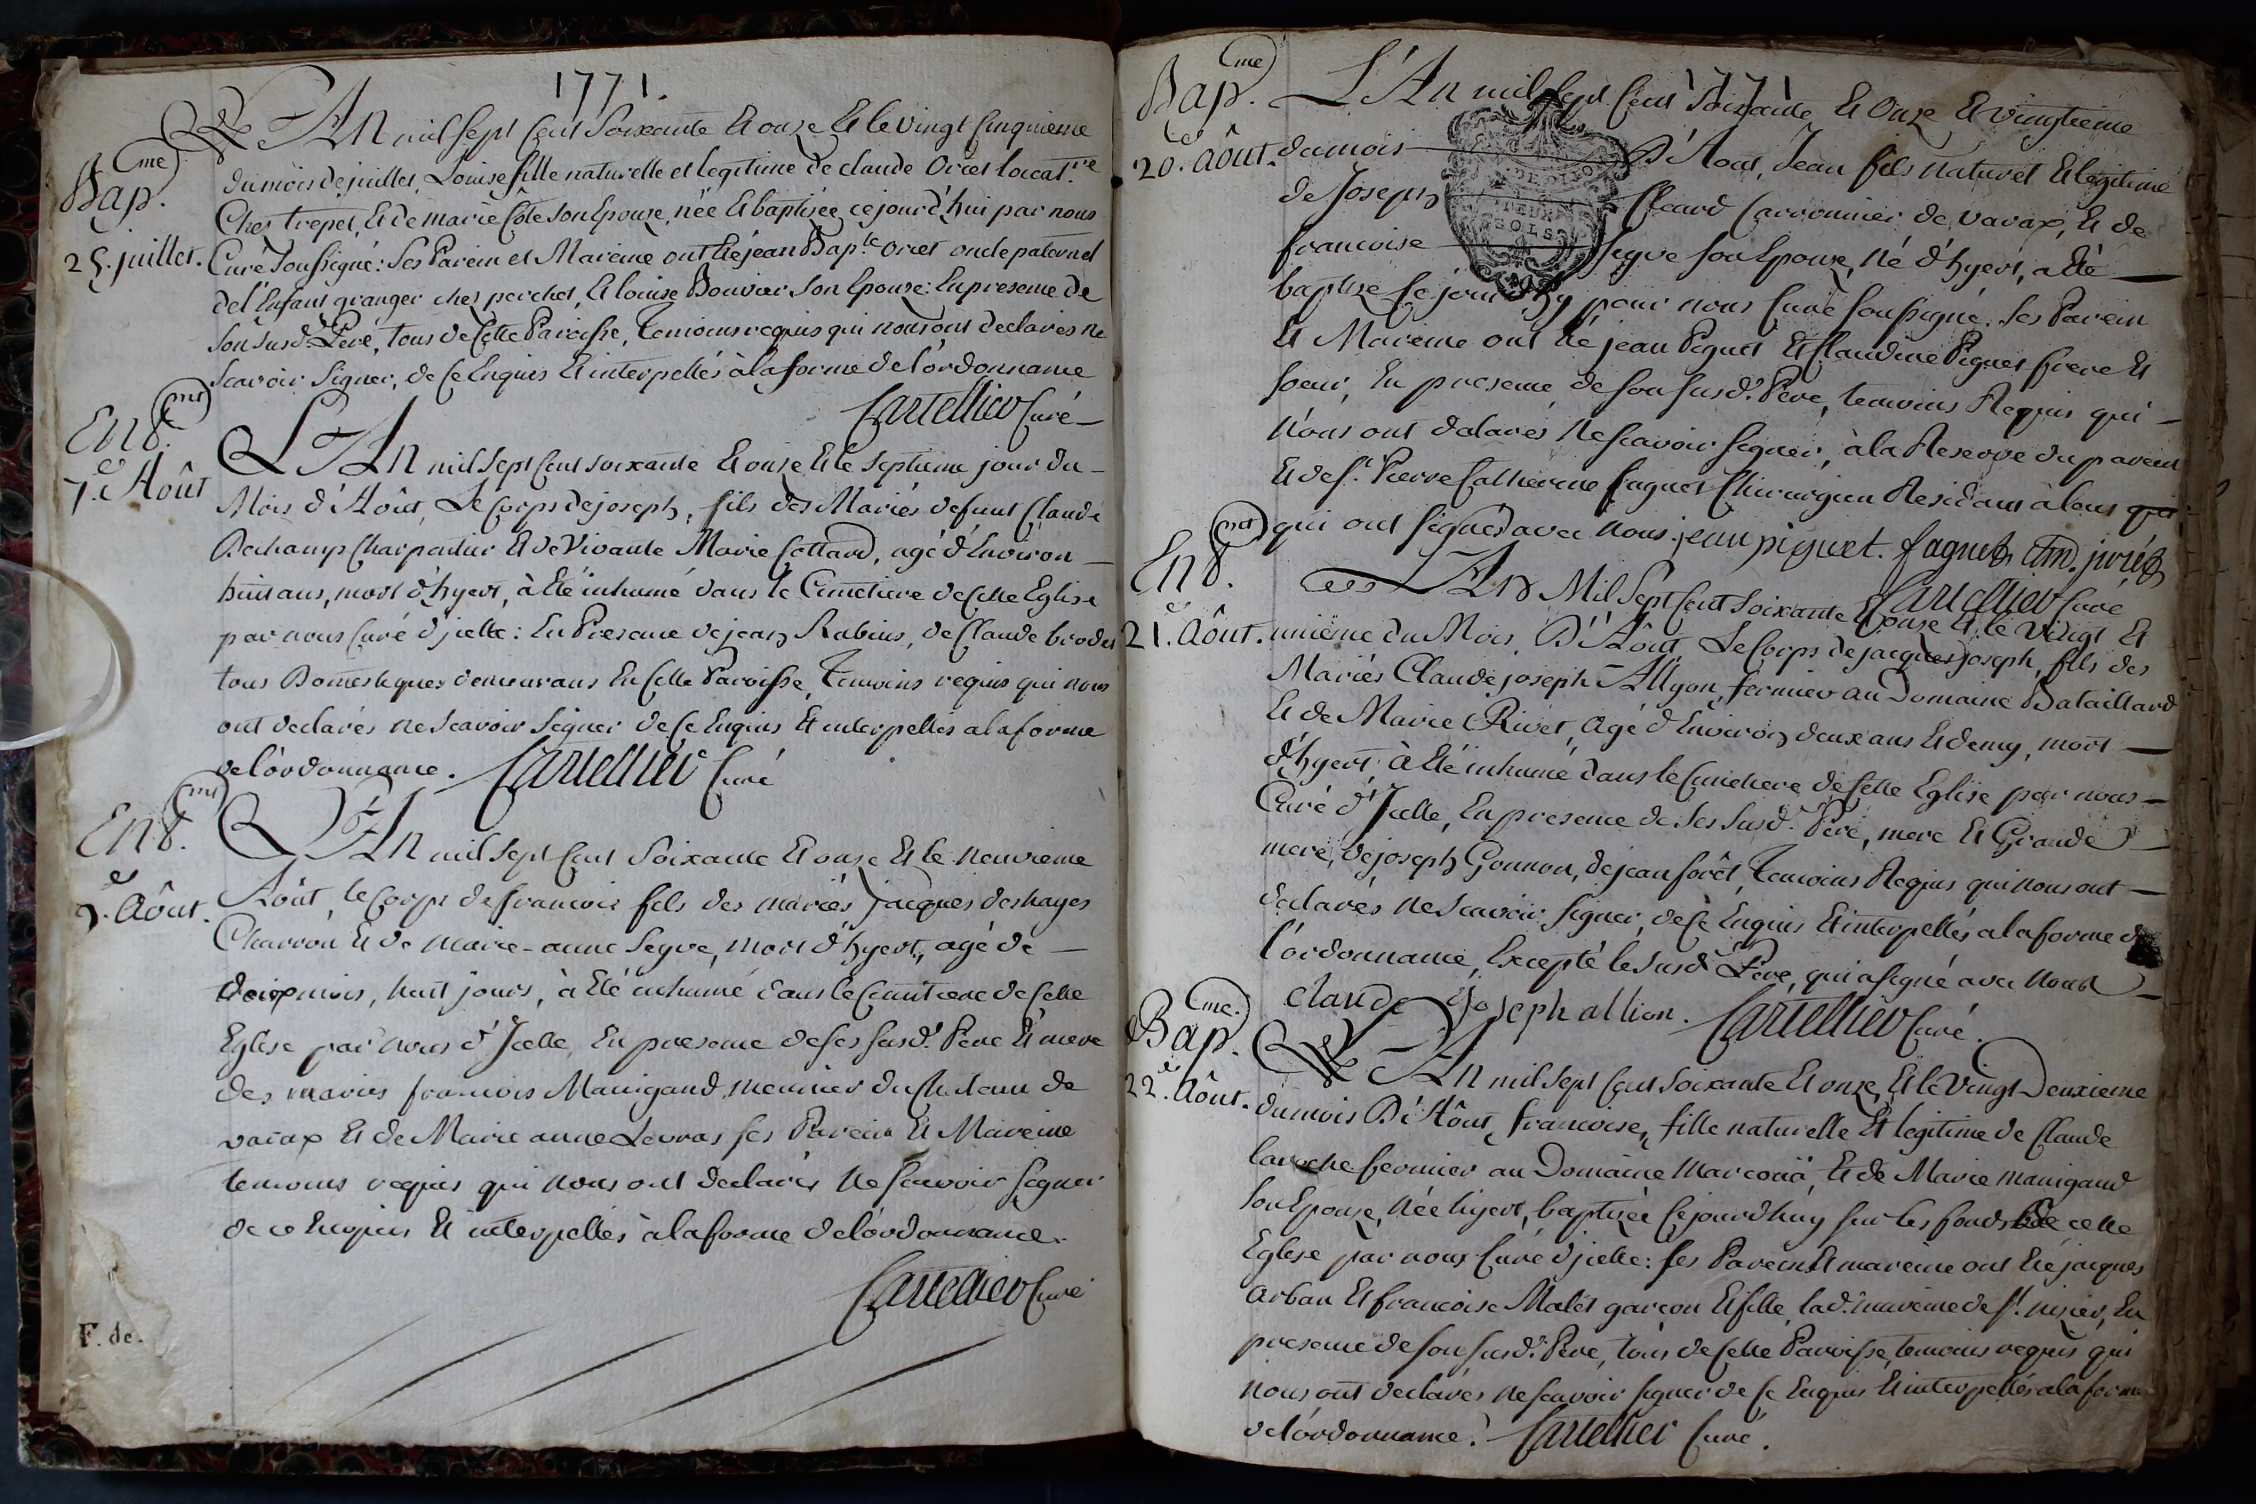 1771.
Bap.me
25. juillet.
L'An mil sept Cent Soixante Et onze Et le vingt Cinquieme
du mois de juillet, Louise fille naturelle et legitime de claude Orcet locat.re
Ches trepet, Et de marie Côte son Epouze, née Et baptisée ce jourd'hui par nous
Curé Soussigné: Ses Parein et Mareine ont Eté jean Bap.te orcet oncle paternel
de l'Enfant granger ches perchet, Et louise Bouvier son Epouze: En presence de
son susd. Peré, tous de Cette Paroisse, Temoins requis qui nous ont declarés ne
scavoir signer, de Ce Enquis Et interpellés à la forme de l'ordonnance
Cartellier Curé
Ent.mt
7.e Août
L'An mil sept Cent soixante Et onze Et le septieme jour du
Mois d'Août, Le Corps de joseph, fils des Mariés defunt Claude
Dechamp Charpentier Et de Vivante Marie Cottard, agé d'Environ
huit ans, mort d'hyert, à Eté inhumé dans le Cimetiere de Cette Eglise
par nous Curé d'jcelle: En Presence de jean Rabins, de Claude brodet
tous Domestiques demeurans En Cette Paroisse, Temoins requis qui nous
ont declarés ne scavoir signer de Ce Enquis Et interpellés a la forme
de l'ordonnance. Cartellier Curé
Ent.mt
9.e Août.
L'An mil sept Cent Soixante Et onze Et le neuvieme
Août, le Corps de francois fils des mariés jacques deshayes
Charron Et de marie-anne Seyve, mort d'hyert, agé de
deux mois, huit jours, à Eté inhumé dans le Cimetiere de Cette
Eglise par nous d'Jcelle, En presence de ses susd. Pere Et mere
des mariés francois Manigand meunier du Chateau de
varax Et de Marie anne Levras ses Parein Et Mareine
temoins requis qui nous ont declarés ne scavoir signer
de ce Enquis Et interpellés à la forme de l'ordonnance.
Cartellier Curé
F. de
1771.
Bap.me
20.e Août.
L'An mil sept Cent Soixante Et Onze Et vingtieme
du mois D'Aout, Jean fils naturel Et legitime
de Joseph Cleard Carronnier de varax, Et de
francoise Segve son Epouze, né d'hyert, a Eté
baptize Ce jourd'hy par nous Curé soussigné. Ses Parein
Et Mareine ont Eté jean Piquet Et Claudine Piquet frere Et
soeur, En presence de son susd. Pere, temoins Requis qui
nous ont declarés ne scavoir signer, à la Reserve du parein
Et de s.r Pierre Catherine faguet Chirurgien Residant à lent qui
qui ont signés avec nous. jean piquet. faguet chir. juré
Cartellier Curé
Ent.mt
21.e Août.
L'An Mil Sept Cent soixante Et onze Et le Vingt Et
unieme du Mois, D'Août, Le Corps de jacques joseph, fils des
Mariés Claude joseph Allyon, fermier au Domaine Bataillard
Et de Marie Rivet, agé d'Environ deux ans Et demy, mort
d'hyert, à Eté inhumé dans le Cimetiere de Cette Eglise par nous
Curé d'Jcelle, En presence de ses susd. Pere, mere Et Grande
mere, de joseph Gonnon, de jean forêt, Temoins Requis qui nous ont
declarés ne scavoir signer, de Ce Enquis Et interpellés a la forme de
l'ordonnance, Excepté le susd. Pere, qui a signé avec nous
claude joseph allion. Cartellier Curé.
Bap.me
22.e Août.
L'An mil sept Cent soixante Et onze, Et le Vingt Deuxieme
du mois D'Août, francoise, fille naturelle Et legitime de Claude
laroche fermier au Domaine Marcona, Et de Marie manigand
son Epouze, née hyert, baptizée Ce jourdhuy sur les fonds de cette
Eglise par nous Curé d'jcelle: ses Parein Et mareine ont Eté jacques
arban Et francoise Malet garçon Et fille, lad. mareine de s.t nizier, En
presence de son susd. Pere, tous de Cette Paroisse temoins requis qui
nous ont declarés ne scavoir signer de Ce Enquis Et interpellés a la forme
de l'ordonnance. Cartellier Curé.